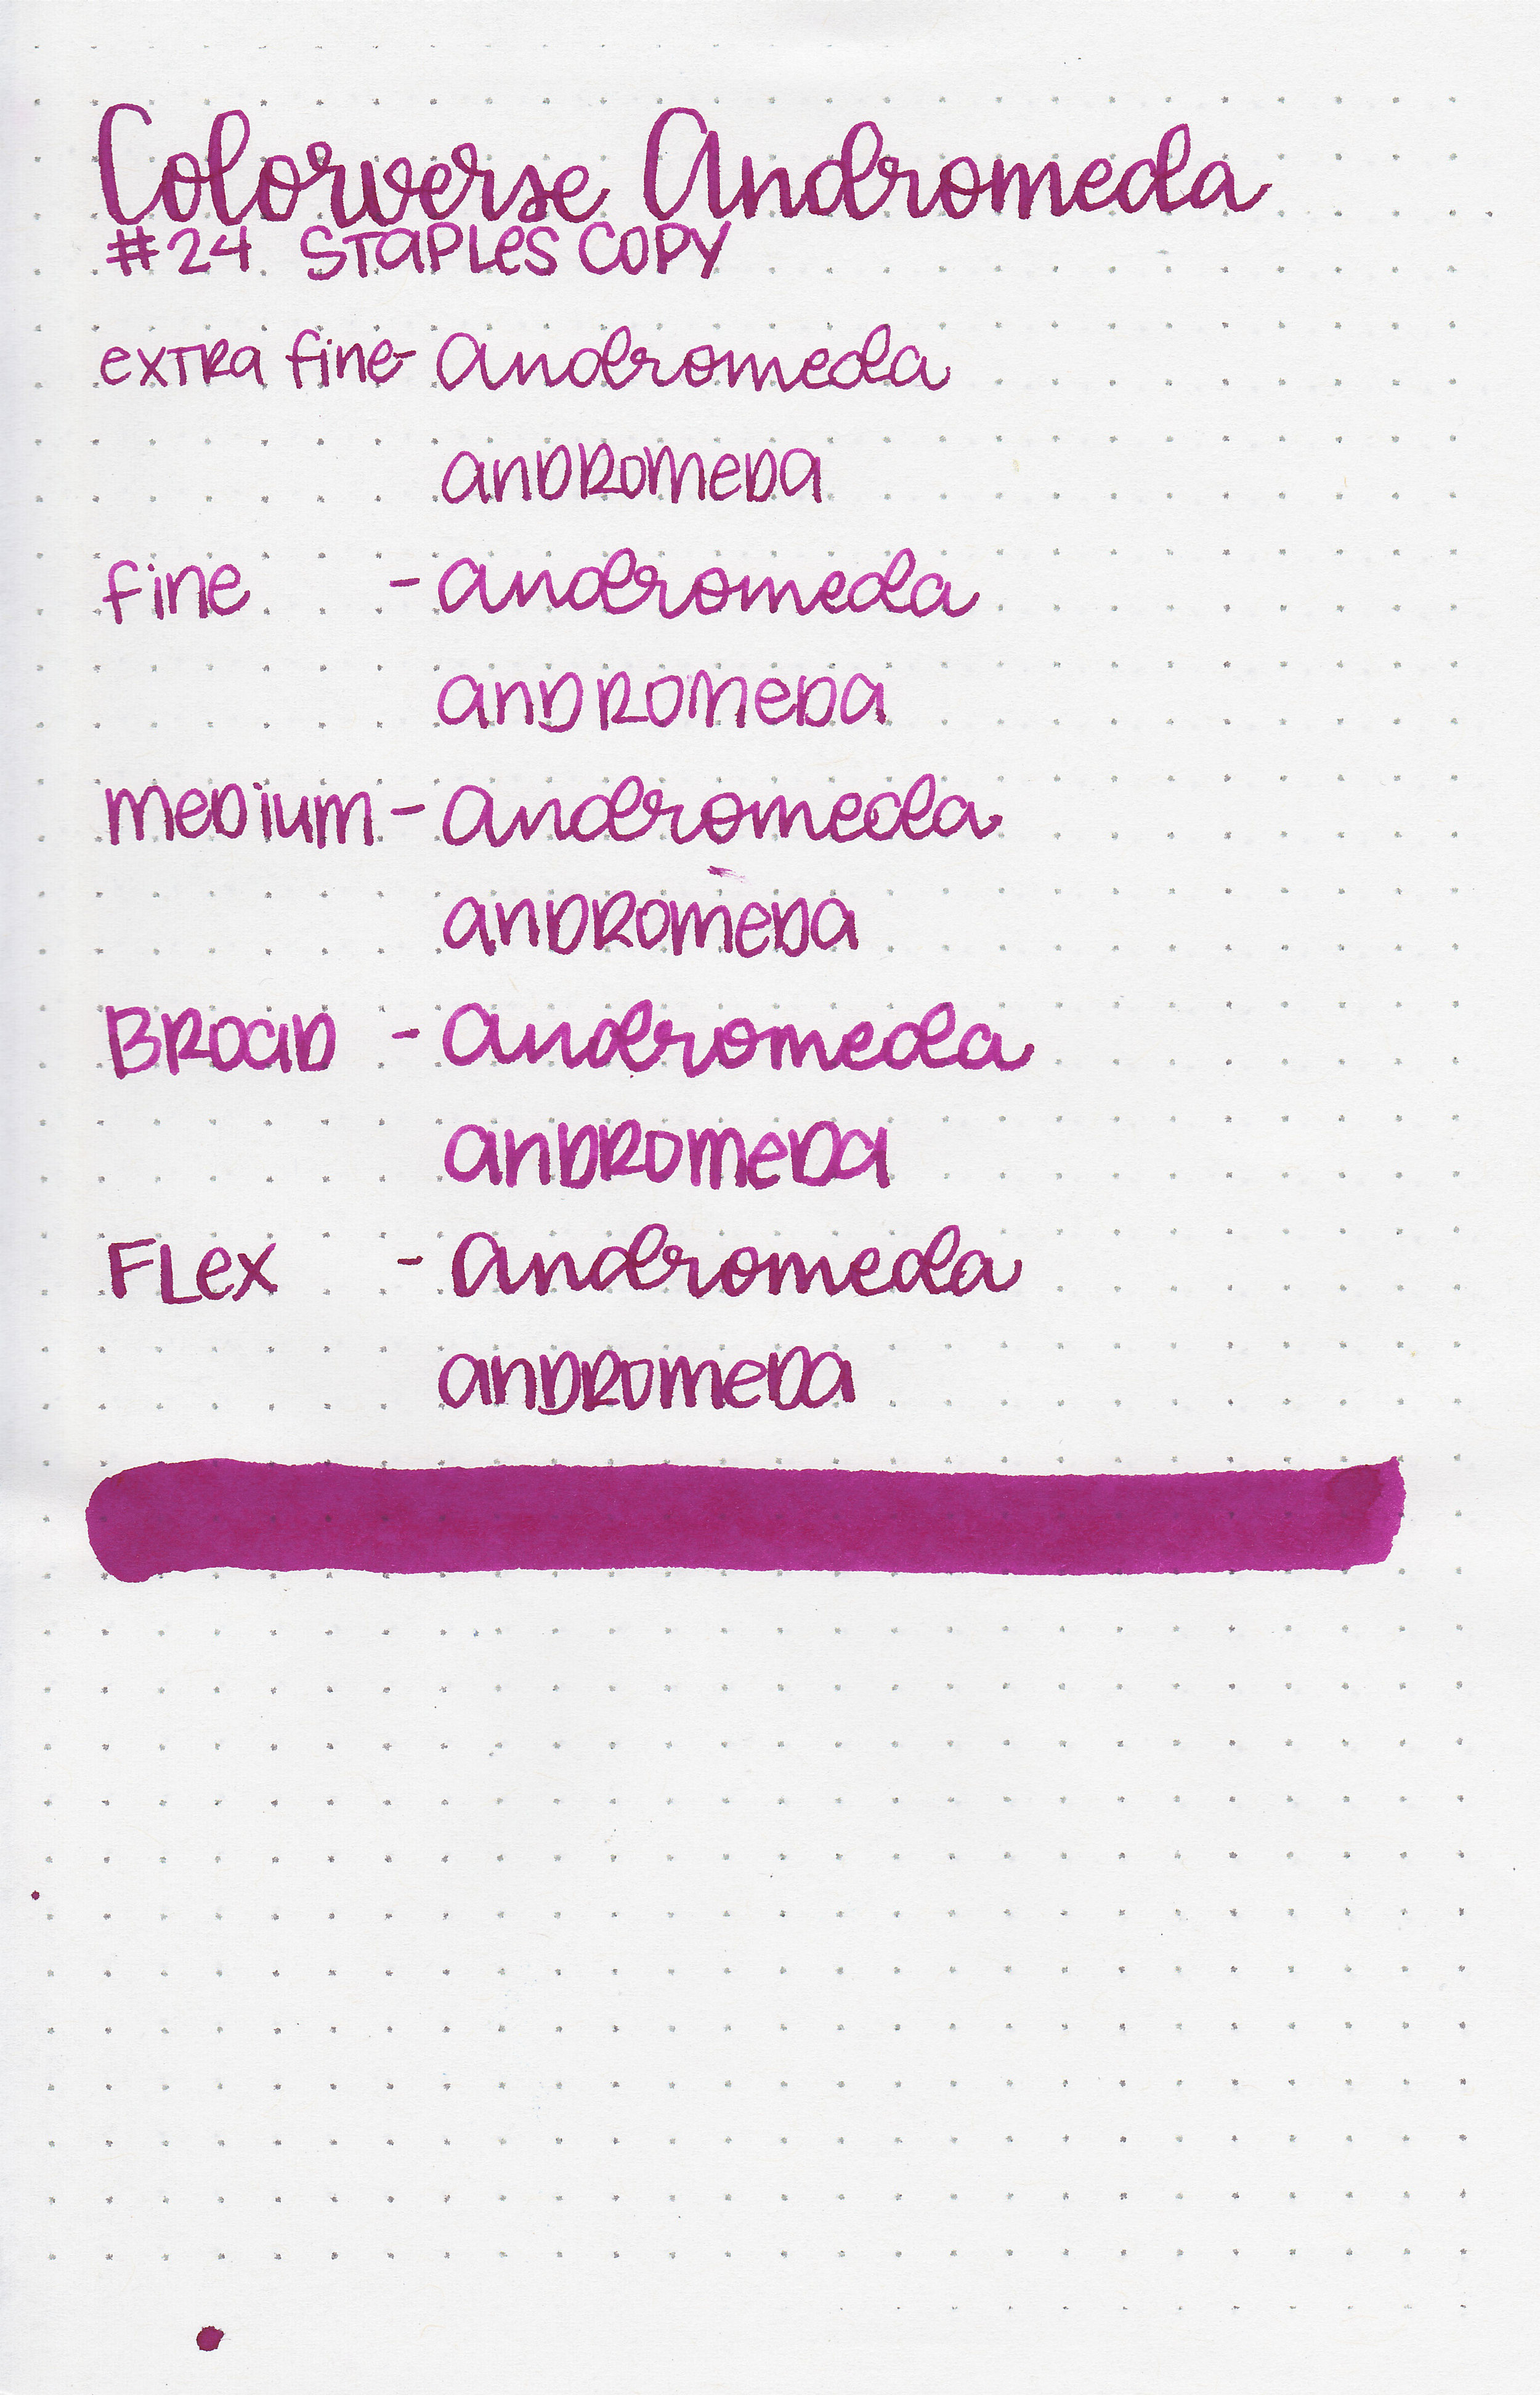 Colorverse Andromeda
#24 Staples Copy
extra fine - andromeda
andromeda
fine - andromeda
andromeda
medium - andromeda
andromeda
Broad - andromeda
andromeda
Flex - andromeda
andromeda